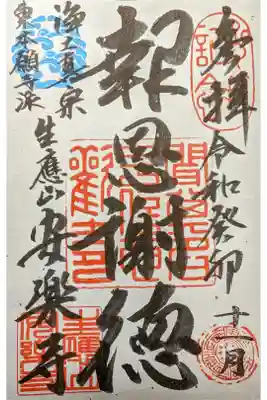 参拝
令和癸卯
十一月
報恩謝徳
浄土真宗
東本願寺派
生應山 安樂寺